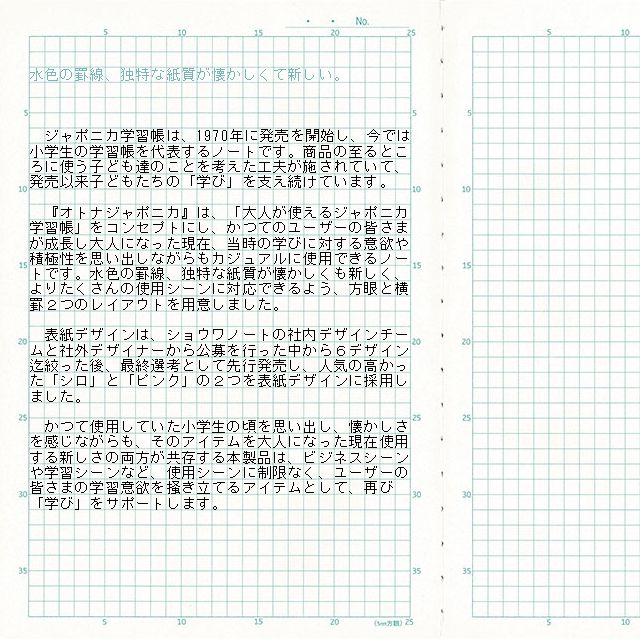 No.
5 10 15 20 25
水色の罫線、独特な紙質が懐かしくて新しい。
5
ジャポニカ学習帳は、1970年に発売を開始し、今では
小学生の学習帳を代表するノートです。商品の至るとこ
ろに使う子ども達のことを考えた工夫が施されていて、
発売以来子どもたちの「学び」を支え続けています。
10
『オトナジャポニカ』は、「大人が使えるジャポニカ
学習帳」をコンセプトにし、かつてのユーザーの皆さま
が成長し大人になった現在、当時の学びに対する意欲や
積極性を思い出しながらもカジュアルに使用できるノー
15
トです。水色の罫線、独特な紙質が懐かしくも新しく、
よりたくさんの使用シーンに対応できるよう、方眼と横
罫２つのレイアウトを用意しました。
表紙デザインは、ショウワノートの社内デザインチー
20
ムと社外デザイナーから公募を行った中から６デザイン
迄絞った後、最終選考として先行発売し、人気の高かっ
た「シロ」と「ピンク」の２つを表紙デザインに採用し
ました。
25
かつて使用していた小学生の頃を思い出し、懐かしさ
を感じながらも、そのアイテムを大人になった現在使用
する新しさの両方が共存する本製品は、ビジネスシーン
や学習シーンなど、使用シーンに制限なく、ユーザーの
皆さまの学習意欲を掻き立てるアイテムとして、再び
30
「学び」をサポートします。
35
5 10 15 20 (5㎜方眼) 25
5 10
5
10
15
20
25
30
35
5 10